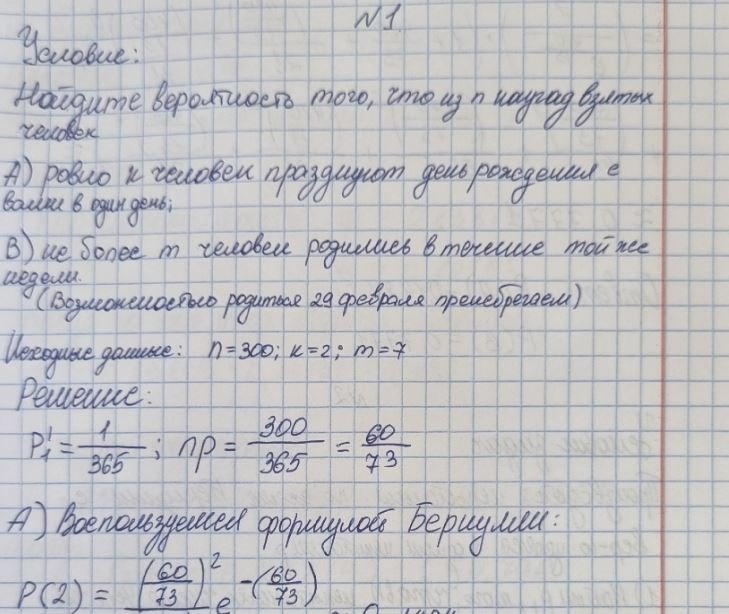 №1.
Условие:
Найдите вероятность того, что из n наугад взятых
человек
А) ровно к человек празднуют день рождения с
вами в один день;
В) не более m человек родились в течение той же
недели.
(Возможностью родиться 29 февраля пренебрегаем)
Исходные данные: n=300; к=2; m=7
Решение:
P₁¹ = 1/365 ; np = 300/365 = 60/73
А) Воспользуемся формулой Бернулли:
P(2) = (60/73)² e^-(60/73)